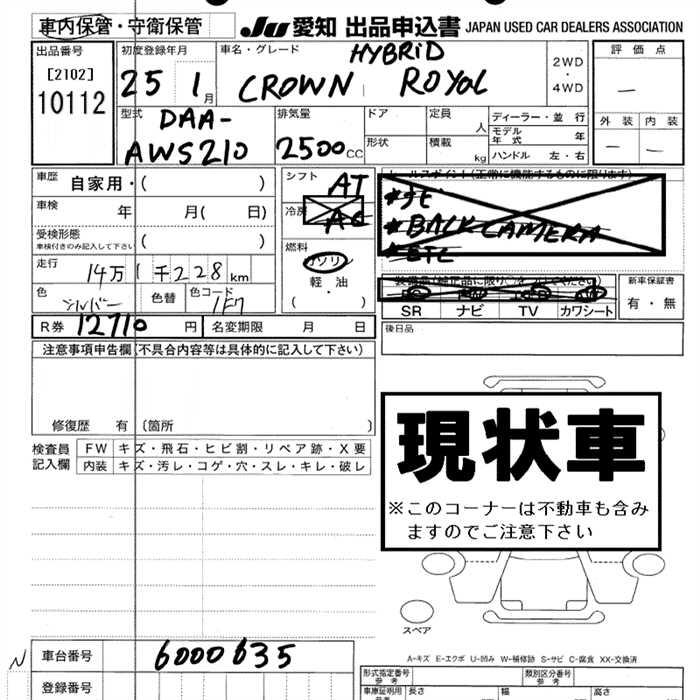 車内保管・守衛保管
JU 愛知 出品申込書 JAPAN USED CAR DEALERS ASSOCIATION
出品番号 初度登録年月 車名・グレード HYBRID 評価点
[2102] 25 1月 CROWN ROYAL 2WD・4WD —
10112
型式 排気量 ドア 定員 人 ディーラー・並行 外装 内装
DAA-AWS210 2500cc 形状 積載 kg モデル年式 年 — —
ハンドル 左・右
車歴 自家用・( ) シフト AT
車検 年 月( 日) 冷房 AC
受検形態 車検付きのみ記入して下さい ( )
燃料 ガソリン・軽・油 ( )
走行 14万1千228km
色 シルバー 色替 色コード 1F7
R券 12710円 名変期限 月 日
セールスポイント(正常に機能するものに限ります)
*ナビ
*BACK CAMERA
*ETC
SR ナビ TV カワシート
新車保証書 有・無
後日品
注意事項申告欄(不具合内容等は具体的に記入して下さい)
修復歴 有 〔箇所 〕
検査員記入欄 FW キズ・飛石・ヒビ割・リペア跡・X要
内装 キズ・汚レ・コゲ・穴・スレ・キレ・破レ
現状車
※このコーナーは不動車も含み
ますのでご注意下さい
スペア
A-キズ E-エクボ U-凹み W-補修跡 S-サビ C-腐食 XX-交換済
N 車台番号 6000635
登録番号
形式指定番号 参考 類別区分番号 参考
車庫証明用 参考 長さ 幅 高さ